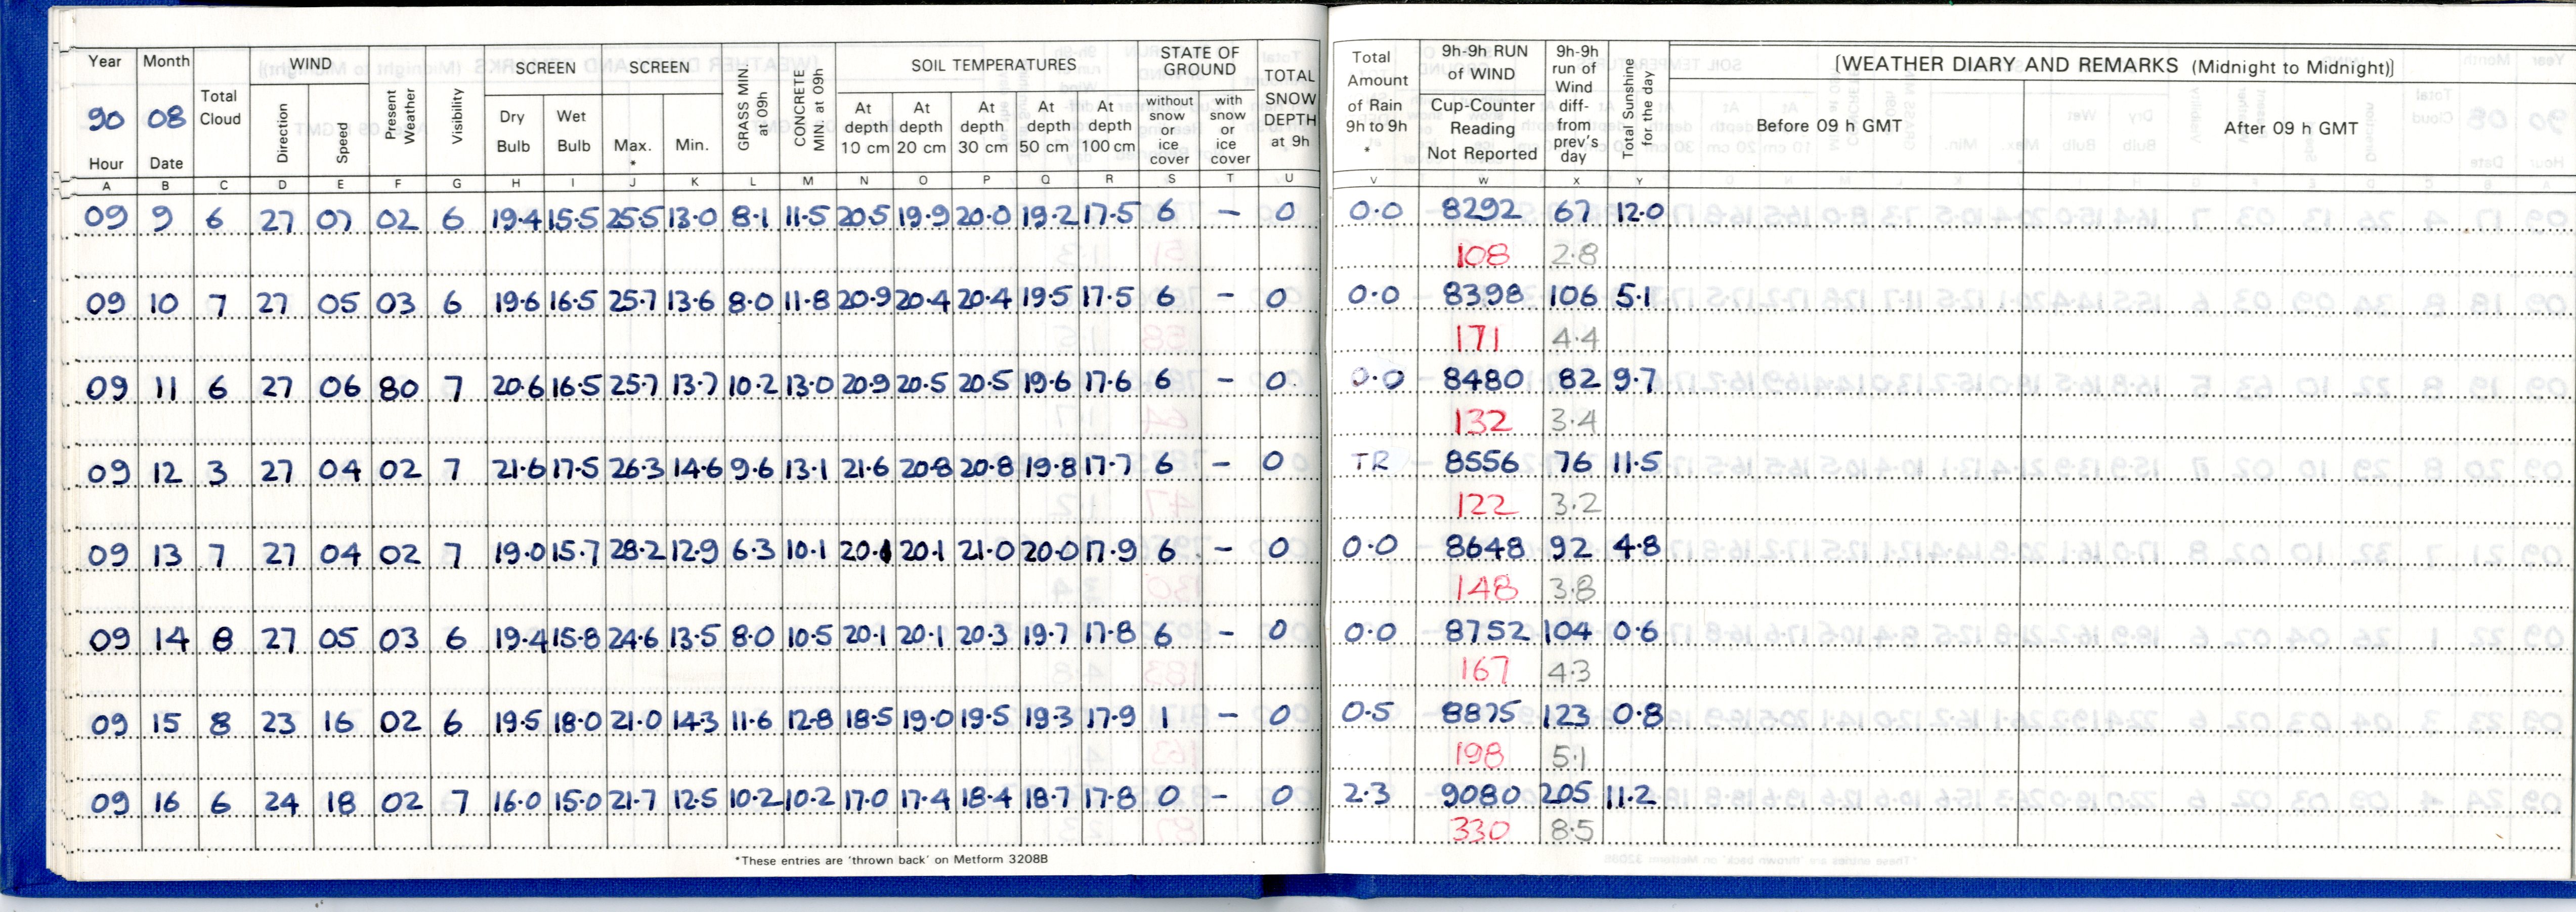 Year Month Total Cloud WIND Present Weather Visibility SCREEN SCREEN GRASS MIN. at 09h CONCRETE MIN. at 09h SOIL TEMPERATURES STATE OF GROUND TOTAL SNOW DEPTH at 9h Total Amount of Rain 9h to 9h * 9h-9h RUN of WIND 9h-9h run of Wind diff- from prev's day Total Sunshine for the day [WEATHER DIARY AND REMARKS (Midnight to Midnight)]
90 08 Direction Speed Dry Bulb Wet Bulb Max. * Min. At depth 10 cm At depth 20 cm At depth 30 cm At depth 50 cm At depth 100 cm without snow or ice cover with snow or ice cover Cup-Counter Reading Not Reported Before 09 h GMT After 09 h GMT
Hour Date
A B C D E F G H I J K L M N O P Q R S T U V W X Y
09 9 6 27 07 02 6 19.4 15.5 25.5 13.0 8.1 11.5 20.5 19.9 20.0 19.2 17.5 6 – 0 0.0 8292 67 12.0
108 2.8
09 10 7 27 05 03 6 19.6 16.5 25.7 13.6 8.0 11.8 20.9 20.4 20.4 19.5 17.5 6 – 0 0.0 8398 106 5.1
171 4.4
09 11 6 27 06 80 7 20.6 16.5 25.7 13.7 10.2 13.0 20.9 20.5 20.5 19.6 17.6 6 – 0 0.0 8480 82 9.7
132 3.4
09 12 3 27 04 02 7 21.6 17.5 26.3 14.6 9.6 13.1 21.6 20.8 20.8 19.8 17.7 6 – 0 TR 8556 76 11.5
122 3.2
09 13 7 27 04 02 7 19.0 15.7 28.2 12.9 6.3 10.1 20.1 20.1 21.0 20.0 17.9 6 – 0 0.0 8648 92 4.8
148 3.8
09 14 8 27 05 03 6 19.4 15.8 24.6 13.5 8.0 10.5 20.1 20.1 20.3 19.7 17.8 6 – 0 0.0 8752 104 0.6
167 4.3
09 15 8 23 16 02 6 19.5 18.0 21.0 14.3 11.6 12.8 18.5 19.0 19.5 19.3 17.9 1 – 0 0.5 8875 123 0.8
198 5.1
09 16 6 24 18 02 7 16.0 15.0 21.7 12.5 10.2 10.2 17.0 17.4 18.4 18.7 17.8 0 – 0 2.3 9080 205 11.2
330 8.5
*These entries are 'thrown back' on Metform 3208B